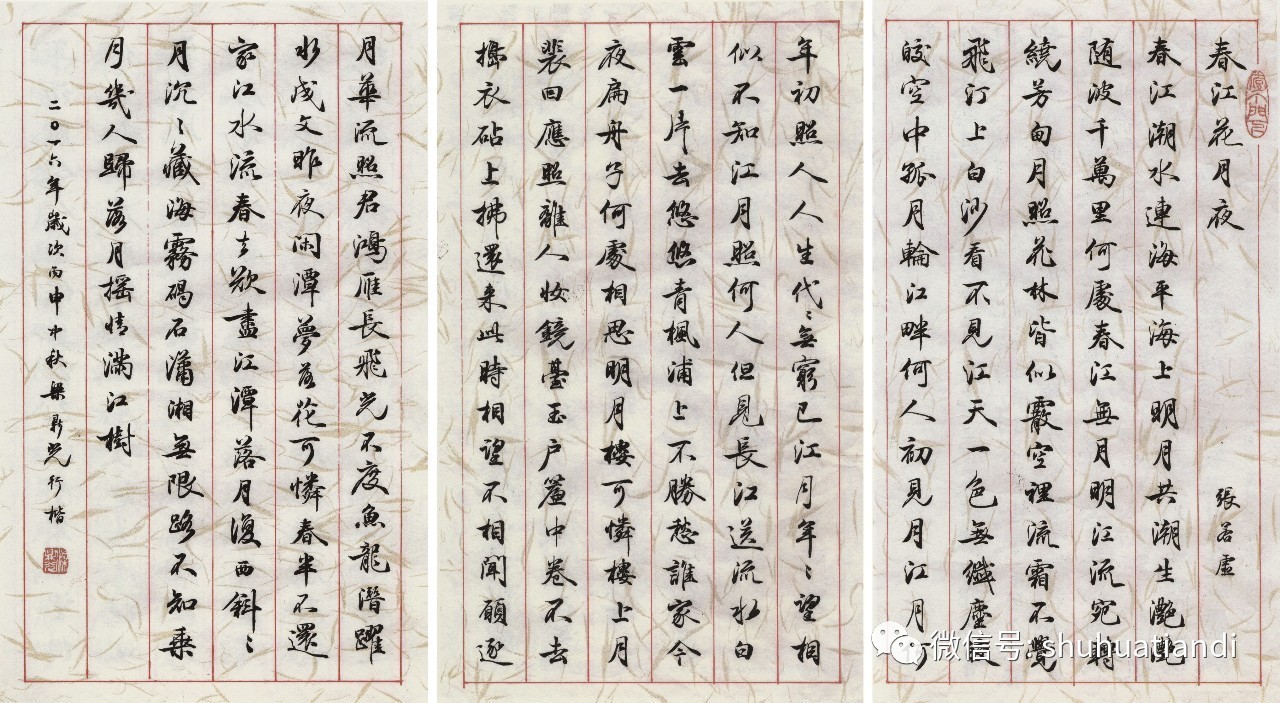 春江花月夜 張若虛
春江潮水連海平海上明月共潮生灔灔
随波千萬里何處春江無月明江流宛轉
繞芳甸月照花林皆似霰空裡流霜不覺
飛汀上白沙看不見江天一色無纖塵
皎空中孤月輪江畔何人初見月江月何
年初照人人生代〻無窮已江月年〻望相
似不知江月照何人但見長江送流水白
雲一片去悠悠青楓浦上不勝愁誰家今
夜扁舟子何處相思明月樓可憐樓上月
裴回應照離人妝鏡臺玉户簾中卷不去
擣衣砧上拂還来此時相望不相聞願逐
月華流照君鴻雁長飛光不度魚龍潛躍
水成文昨夜闲潭夢落花可憐春半不還
家江水流春去欲盡江潭落月復西斜〻
月沉〻藏海霧碣石瀟湘無限路不知乘
月幾人歸落月摇情满江樹
二〇一六年歲次丙申中秋梁鼎光行楷
微信号: shuhuatiandi